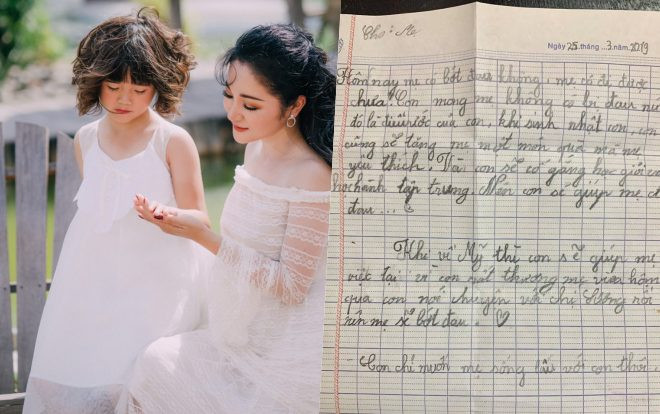 Cho: Mẹ
Ngày 25 tháng 3 năm 2019
Hôm nay mẹ có bớt đau không, mẹ có đi được
chưa? Con mong mẹ không có bị đau nữ
đó là điều ước của con, khi sinh nhật con, con
cũng sẽ tặng mẹ một món quà mà mẹ
yêu thích. Và con sẽ cố gắng học giỏi và
học hành tập trung. Nên con sẽ giúp mẹ
đau...
- Khi về Mỹ thì con sẽ giúp mẹ
việc lại vì con rất thương mẹ vừa hôm
qua con nói chuyện với chị rồi
nên mẹ sẽ bớt đau.
- Con chỉ muốn mẹ sống lâu với con thôi